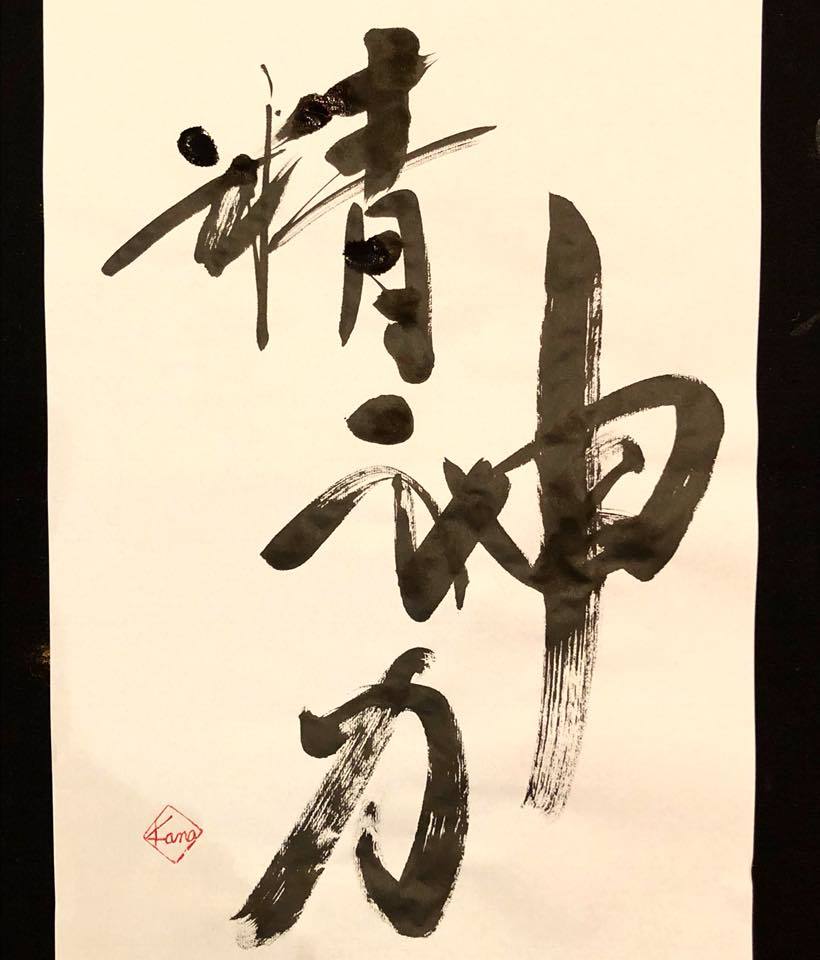 精神力
Kana